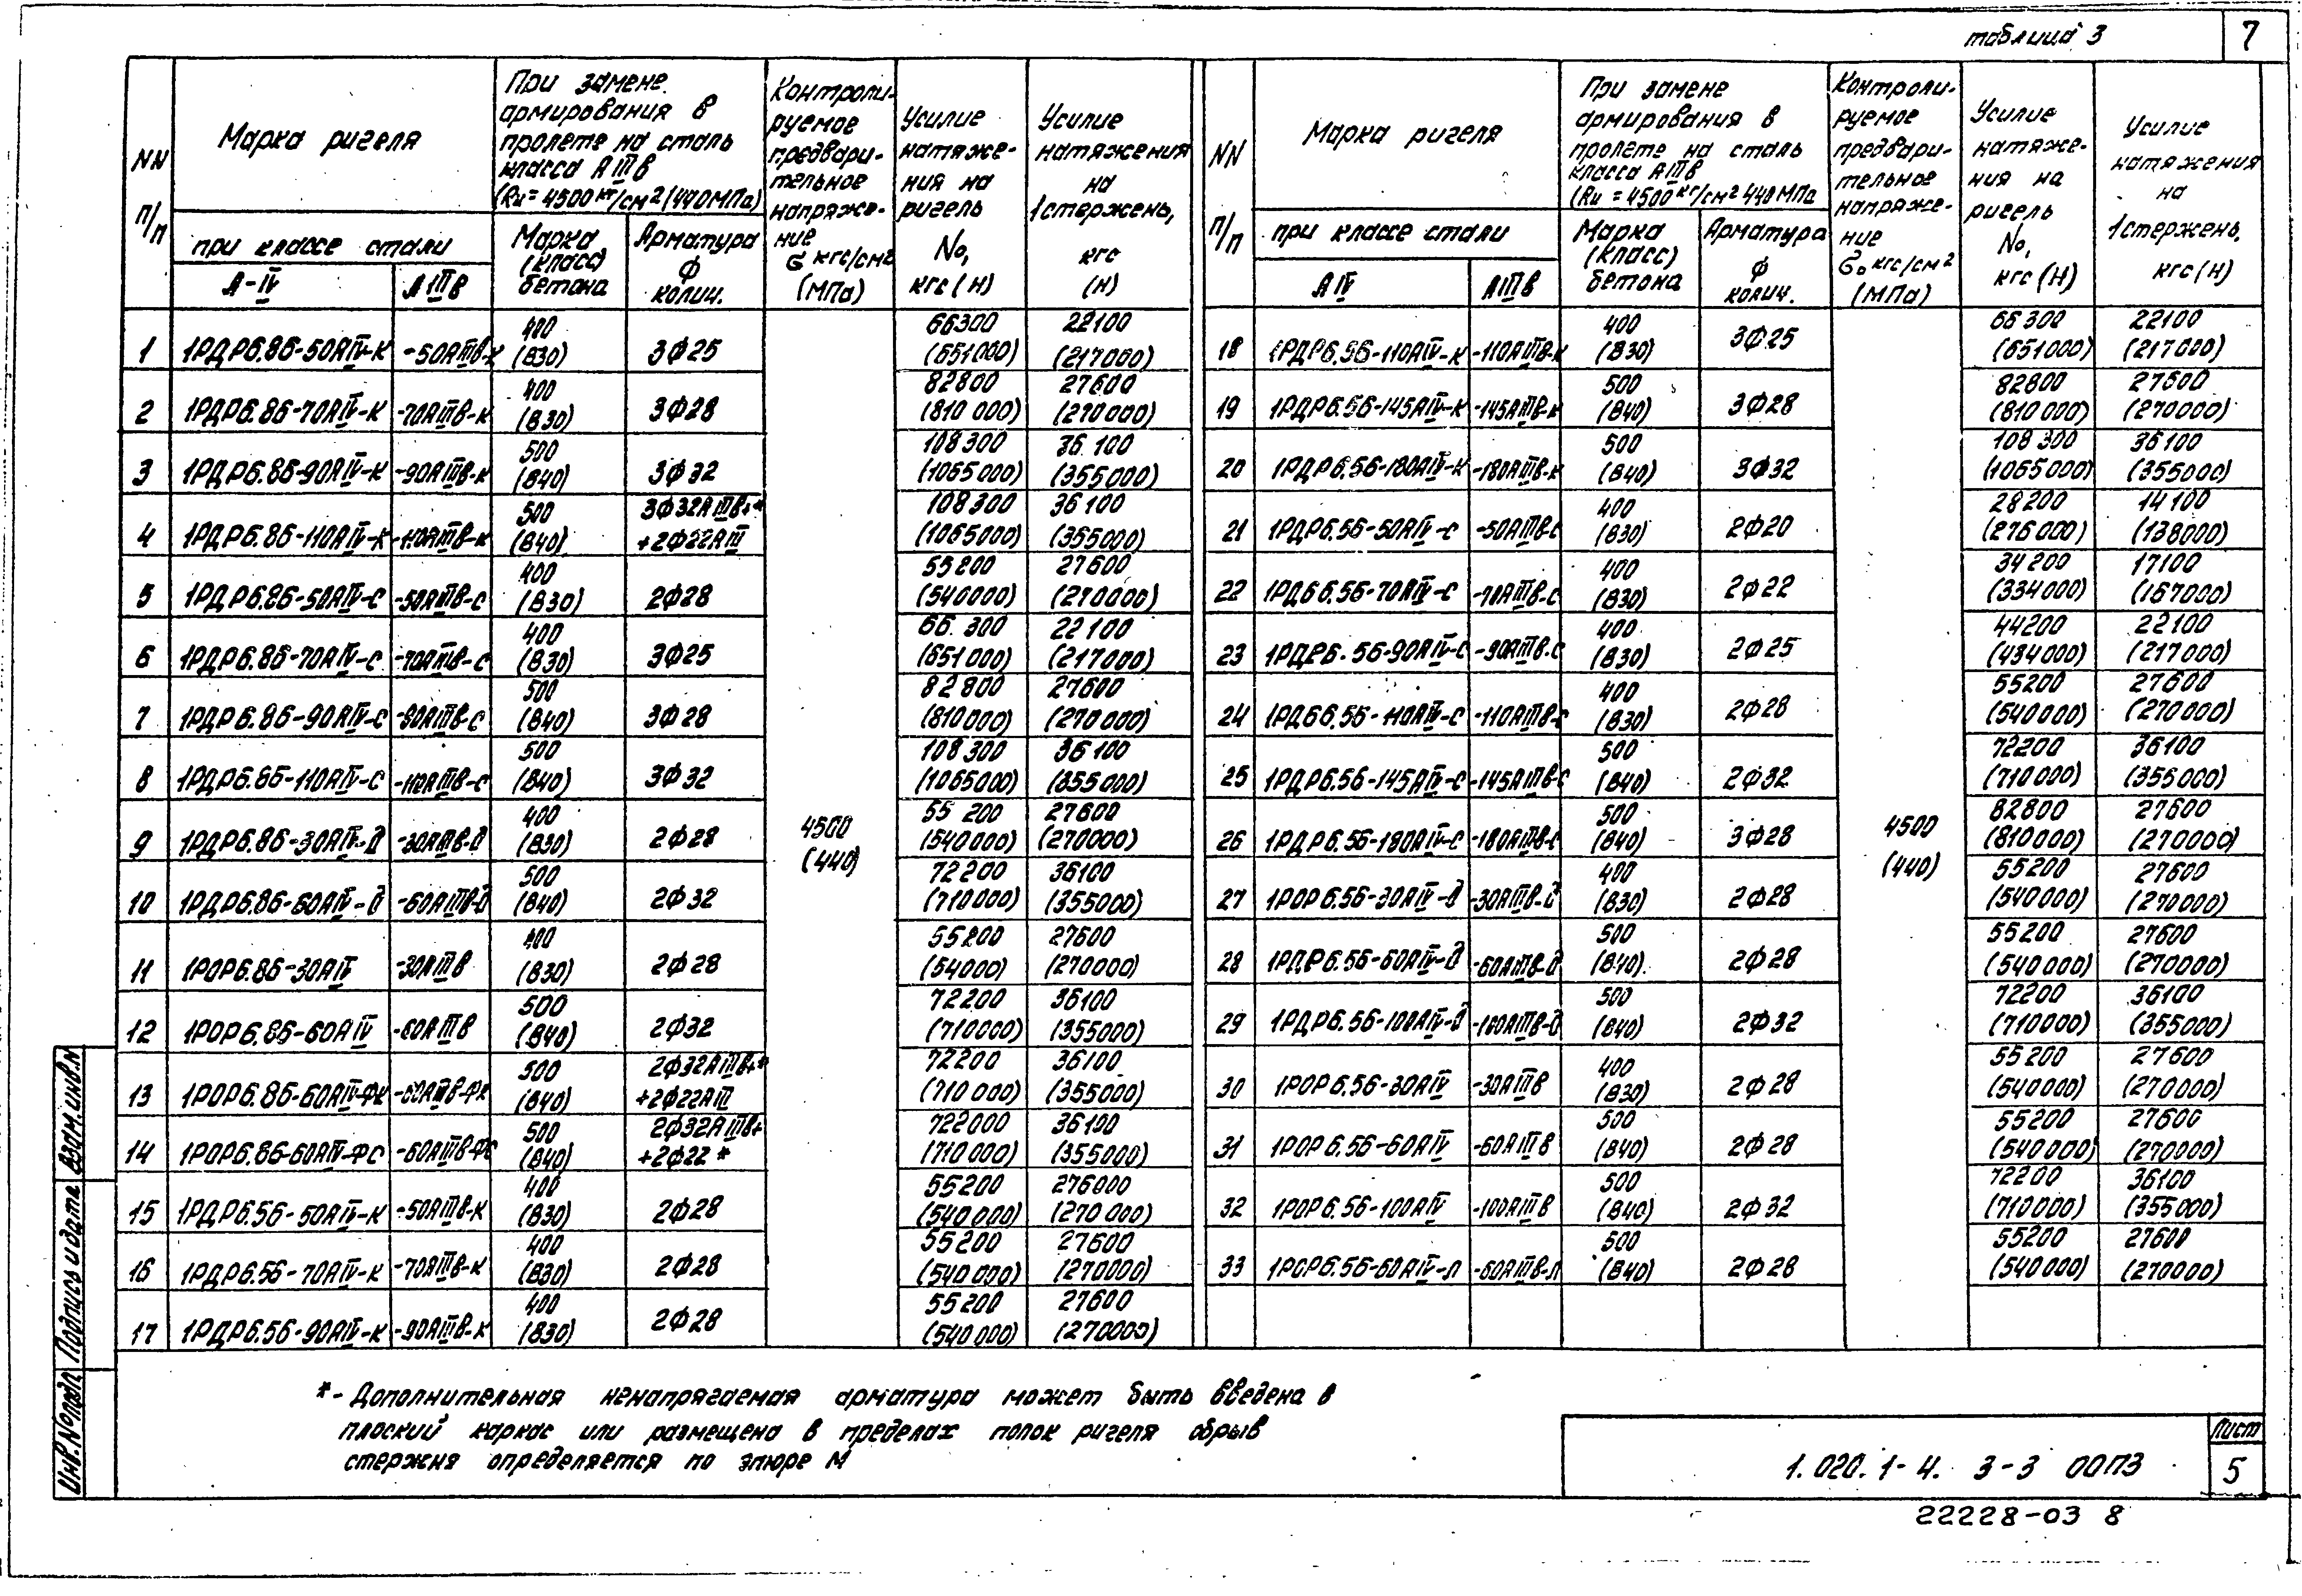 таблица 3
7
NN п/п
Марка ригеля
при классе стали
А-IV
АIIIв
При замене армирования в пролете на сталь класса АIIIв (Rи = 4500 кг/см² (440МПа)
Марка (класс) бетона
Арматура ф колич.
Контролируемое предварительное напряжение G кгс/см² (МПа)
Усилие натяжения на ригель No, кгс (Н)
Усилие натяжения на 1 стержень, кгс (Н)
NN п/п
Марка ригеля
при классе стали
АIV
АIIIв
При замене армирования в пролете на сталь класса АIIIв (Rи = 4500 кг/см² 440МПа
Марка (класс) бетона
Арматура ф колич.
Контролируемое предварительное напряжение Gо кгс/см² (МПа)
Усилие натяжения на ригель No, кгс (Н)
Усилие натяжения на 1 стержень, кгс (Н)
1 1РДР6.86-50АIV-К -50АIIIв-К 400 (В30) 3ф25 66300 (651000) 22100 (217000)
2 1РДР6.86-70АIV-К -70АIIIв-К 400 (В30) 3ф28 82800 (810 000) 27600 (270000)
3 1РДР6.86-90АIV-К -90АIIIв-К 500 (В40) 3ф32 108300 (1065000) 36 100 (355000)
4 1РДР6.86-110АIV-К -110АIIIв-К 500 (В40) 3ф32АIIIв+* +2ф22АIII 108300 (1065000) 36100 (355000)
5 1РДР6.86-50АIV-С -50АIIIв-С 400 (В30) 2ф28 55200 (540000) 27600 (270000)
6 1РДР6.86-70АIV-С -70АIIIв-С 400 (В30) 3ф25 66.300 (651000) 22100 (217000)
7 1РДР6.86-90АIV-С -90АIIIв-С 500 (В40) 3ф28 82800 (810000) 27600 (270000)
8 1РДР6.86-110АIV-С -110АIIIв-С 500 (В40) 3ф32 108300 (1065000) 36100 (355000)
9 1РДР6.86-30АIV-Д -30АIIIв-д 400 (В30) 2ф28 55 200 (540000) 27600 (270000)
10 1РДР6.86-60АIV-д -60АIIIв-д 500 (В40) 2ф32 72200 (710000) 36100 (355000)
11 1РОР6.86-30АIV -30АIIIв 400 (В30) 2ф28 55200 (54000) 27600 (270000)
12 1РОР6.86-60АIV -60АIIIв 500 (В40) 2ф32 72200 (710000) 36100 (355000)
13 1РОР6.86-60АIV-ФК -60АIIIв-ФК 500 (В40) 2ф32АIIIв+* +2ф22АIII 72200 (710 000) 36100 (355000)
14 1РОР6.86-60АIV-ФС -60АIIIв-ФС 500 (В40) 2ф32АIIIв+ +2ф22* 722000 (710 000) 36100 (355000)
15 1РДР6.56-50АIV-К -50АIIIв-К 400 (В30) 2ф28 55200 (540 000) 276000 (270 000)
16 1РДР6.56-70АIV-К -70АIIIв-К 400 (В30) 2ф28 55200 (540 000) 27600 (270000)
17 1РДР6.56-90АIV-К -90АIIIв-К 400 (В30) 2ф28 55200 (540 000) 27600 (270000)
4500 (440)
18 1РДР6.56-110АIV-К -110АIIIв-К 400 (В30) 3ф25 66300 (651000) 22100 (217000)
19 1РДР6.56-145АIV-К -145АIIIв-К 500 (В40) 3ф28 82800 (810 000) 27600 (270000)
20 1РДР6.56-180АIV-К -180АIIIв-К 500 (В40) 3ф32 108300 (1065000) 36100 (355000)
21 1РДР6.56-50АIV-С -50АIIIв-С 400 (В30) 2ф20 28200 (276000) 14100 (138000)
22 1РД66.56-70АIV-С -70АIIIв-С 400 (В30) 2ф22 34200 (334000) 17100 (167000)
23 1РДР6.56-90АIV-С -90АIIIв-С 400 (В30) 2ф25 44200 (434000) 22100 (217000)
24 1РД66.56-110АIV-С -110АIIIв-С 400 (В30) 2ф28 55200 (540000) 27600 (270000)
25 1РДР6.56-145АIV-С -145АIIIв-С 500 (В40) 2ф32 72200 (710000) 36100 (355000)
26 1РДР6.56-180АIV-С -180АIIIв-С 500 (В40) 3ф28 82800 (810000) 27600 (270000)
27 1РОР6.56-30АIV-д -30АIIIв-д 400 (В30) 2ф28 55200 (540000) 27600 (270000)
28 1РДР6.56-60АIV-д -60АIIIв-д 500 (В40) 2ф28 55200 (540 000) 27600 (270000)
29 1РДР6.56-100АIV-д -100АIIIв-д 500 (В40) 2ф32 72200 (710000) 36100 (355000)
30 1РОР6.56-30АIV -30АIIIв 400 (В30) 2ф28 55200 (540000) 27600 (270000)
31 1РОР6.56-60АIV -60АIIIв 500 (В40) 2ф28 55200 (540000) 27600 (270000)
32 1РОР6.56-100АIV -100АIIIв 500 (В40) 2ф32 72200 (710000) 36100 (355000)
33 1РОР6.56-60АIV-Л -60АIIIв-Л 500 (В40) 2ф28 55200 (540 000) 27600 (270000)
4500 (440)
*- Дополнительная ненапрягаемая арматура может быть введена в
плоский каркас или размещена в пределах полок ригеля обрыв
стержня определяется по эпюре М
Инв.№подл. Подпись и дата Взам.инв.N
1.020.1-4. 3-3 00ПЗ
Лист
5
22228-03 8